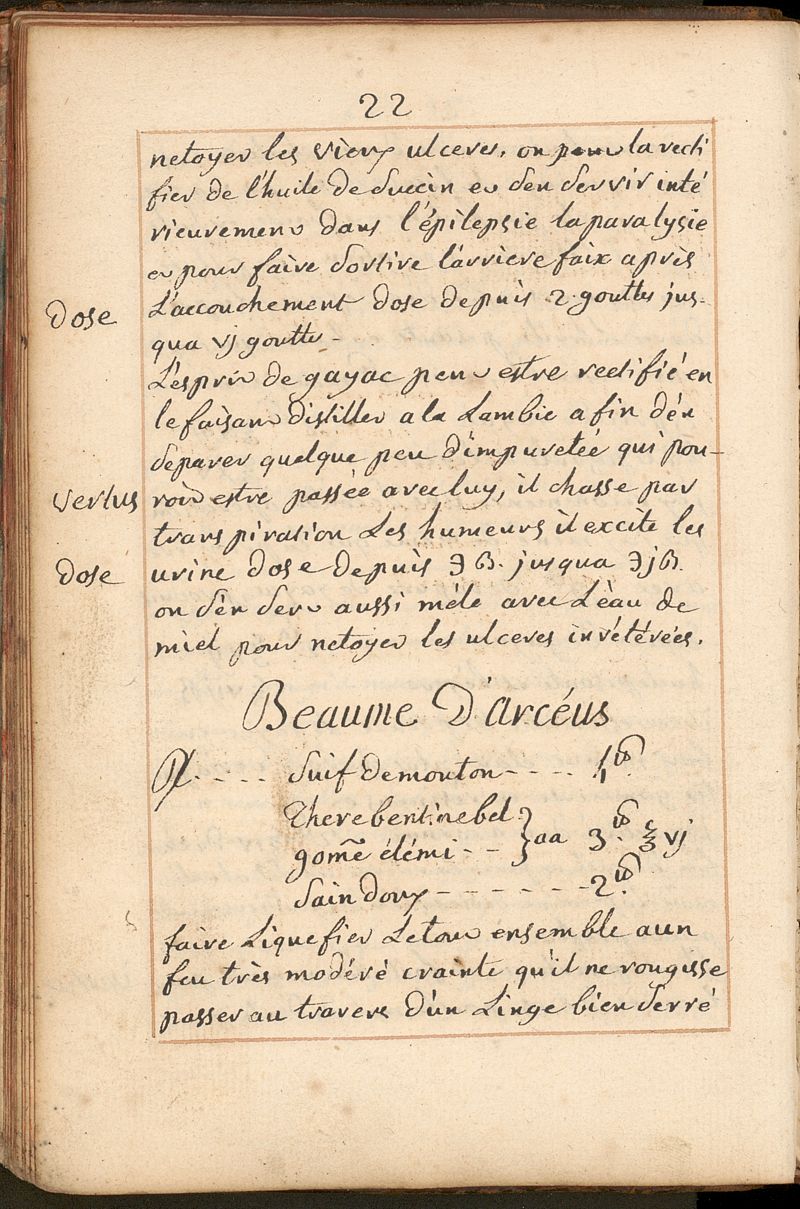 22
netoyer les vieux ulceres, on peut la recti
fier de l'huile de succin et s'en servir inté
rieurement dans l'épilepsie la paralysie
et pour faire sortire l'arriere faix après
Dose
L'accouchement dose depuis 2 gouttes jus-
qua vj gouttes -
L'esprit de gayac peut estre rectifié en
le faisant distiller a la Lambic afin d'en
separer quelque peu d'impuretée qui pou-
vertus
roit estre passée avec luy, il chasse par
transpiration Les humeurs il excite les
Dose
urine dose depuis ℈ß. jusqua ℈jß.
on s'en sert aussi mêlé avec L'eau de
miel pour netoyer les ulceres invétérées.
Beaume D'arcéus
℞. - - - - Suif de mouton - - - - 1 ℔.
Therebentine bel.
gom̃e élémi - - } aa 3 ℔. ℥ vj
Sain doux - - - - - - - 2 ℔.
faire Liquefier Le tout ensemble a un
feu très modéré crainte qu'il ne rougisse
passer au travers d'un Linge bien serré